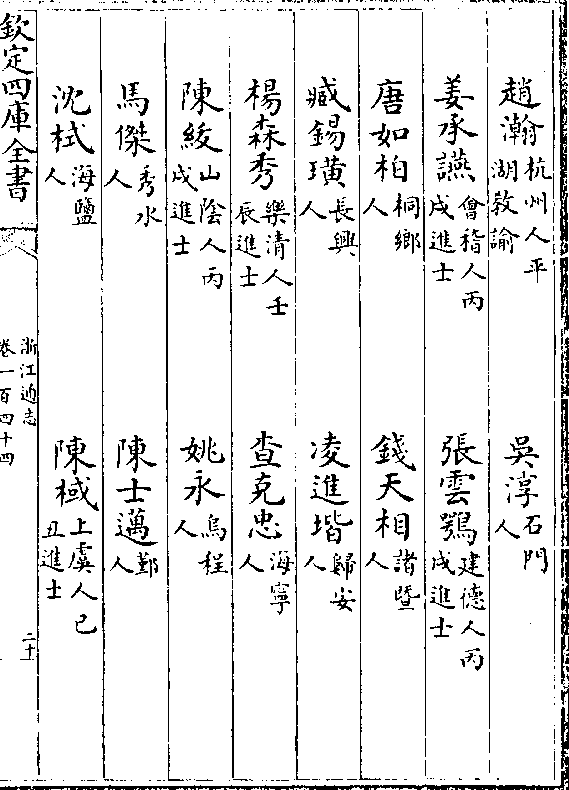 趙瀚杭州人平湖教諭　吳淳石門人
姜承讌會稽人丙戌進士　張雲鶚建德人丙戌進士
唐如柏桐鄉人　錢天相諸暨人
臧錫璜長興人　凌進堦歸安人
楊森秀樂清人壬辰進士　查克忠海寧人
陳綏山陰人丙戌進士　姚永烏程人
馬傑秀水人　陳士邁鄞人
沈栻海鹽人　陳棫上虞人已丑進士
欽定四庫全書
浙江通志
卷一百四十四
二十